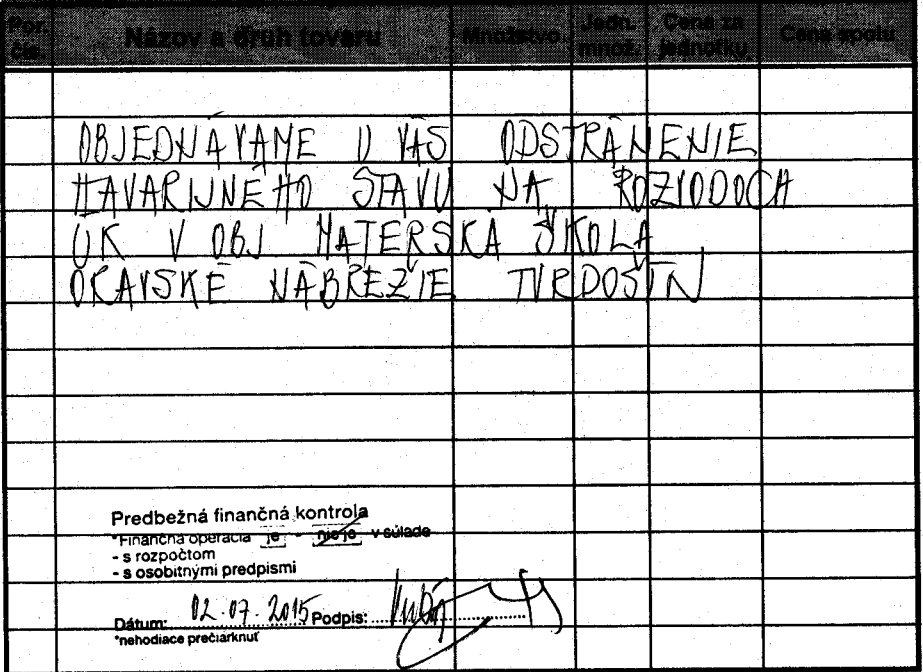 Por. čís. Názov a druh tovaru Množstvo Jedn. množ. Cena za jednotku Cena spolu
OBJEDNÁVAME U VÁS ODSTRÁNENIE
HAVARIJNÉHO STAVU NA ROZVODOCH
ÚK V OBJ MATERSKÁ ŠKOLA
ORAVSKÉ NÁBREŽIE TVRDOŠÍN
Predbežná finančná kontrola
*Finančná operácia je - nie je v súlade
- s rozpočtom
- s osobitnými predpismi
Dátum: 02.07.2015 Podpis:
*nehodiace prečiarknuť